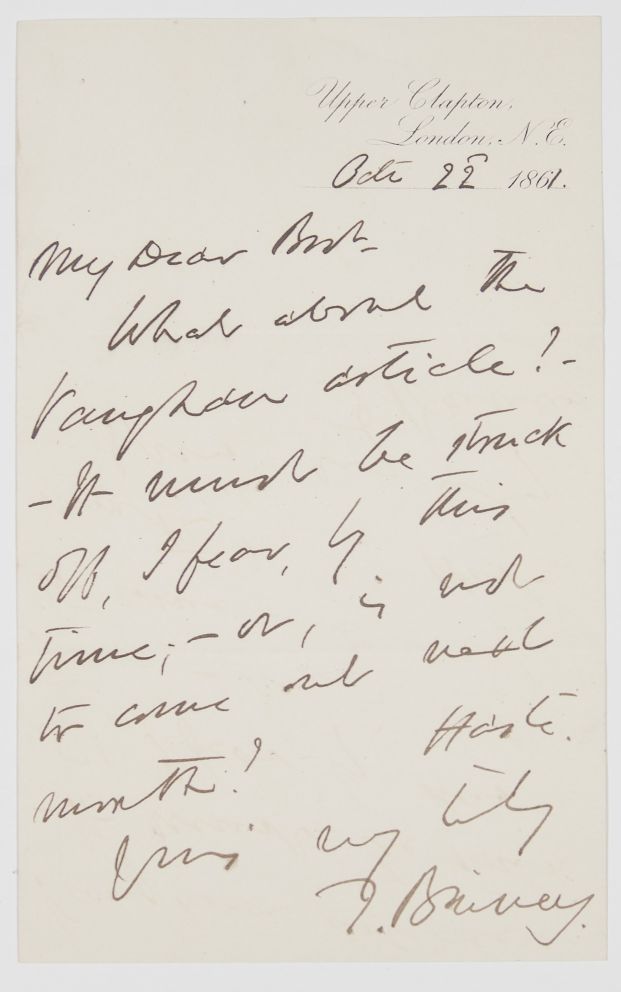 Upper Clapton,
London, N.E.
Octr 22 1861.
My Dear Brst-
What about the
Vaughan article? -
- It must be struck
off, I fear, by this
time; - or, is not
to come out next
month? Haste.
Yours vy truly
T. Binney.